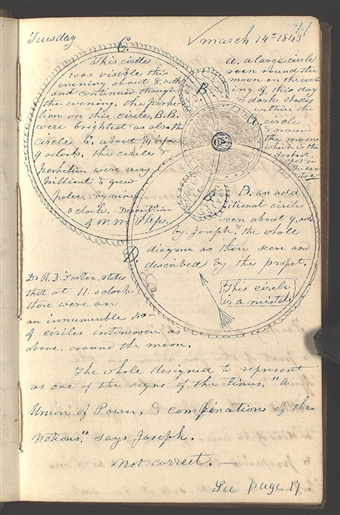 Tuesday
March 14th 1843
C.
This circle
was visible this
evening about 8. oclk
and continued though
the evening, the parhe-
lion on this circle, B.B.
were brightest as also the
circle C. about
9 oclock, the circle &
perihelion were very
brilliant & grew
paler, by nine,
oclock,
of W. W.
A. a large circle
seen round the
moon on the eve
ing of this day
dark shades
within the
circle
around
the moon
which is the
B.
A
B
D
D. an add
itional circle
seen about 9. oclock
by Joseph. the whole
diagram as then seen and
described by the prophet.
This circle
is a mistake
Dr R. D. Foster, states
that at 11. oclock
there were an
an innumerable No
of circles interwoven as
above, around the moon.
The whole designed to represent
as one of the signs of the times, "a
Union of Power, & combination of the
Nations," says Joseph.
not correct.
See page 17